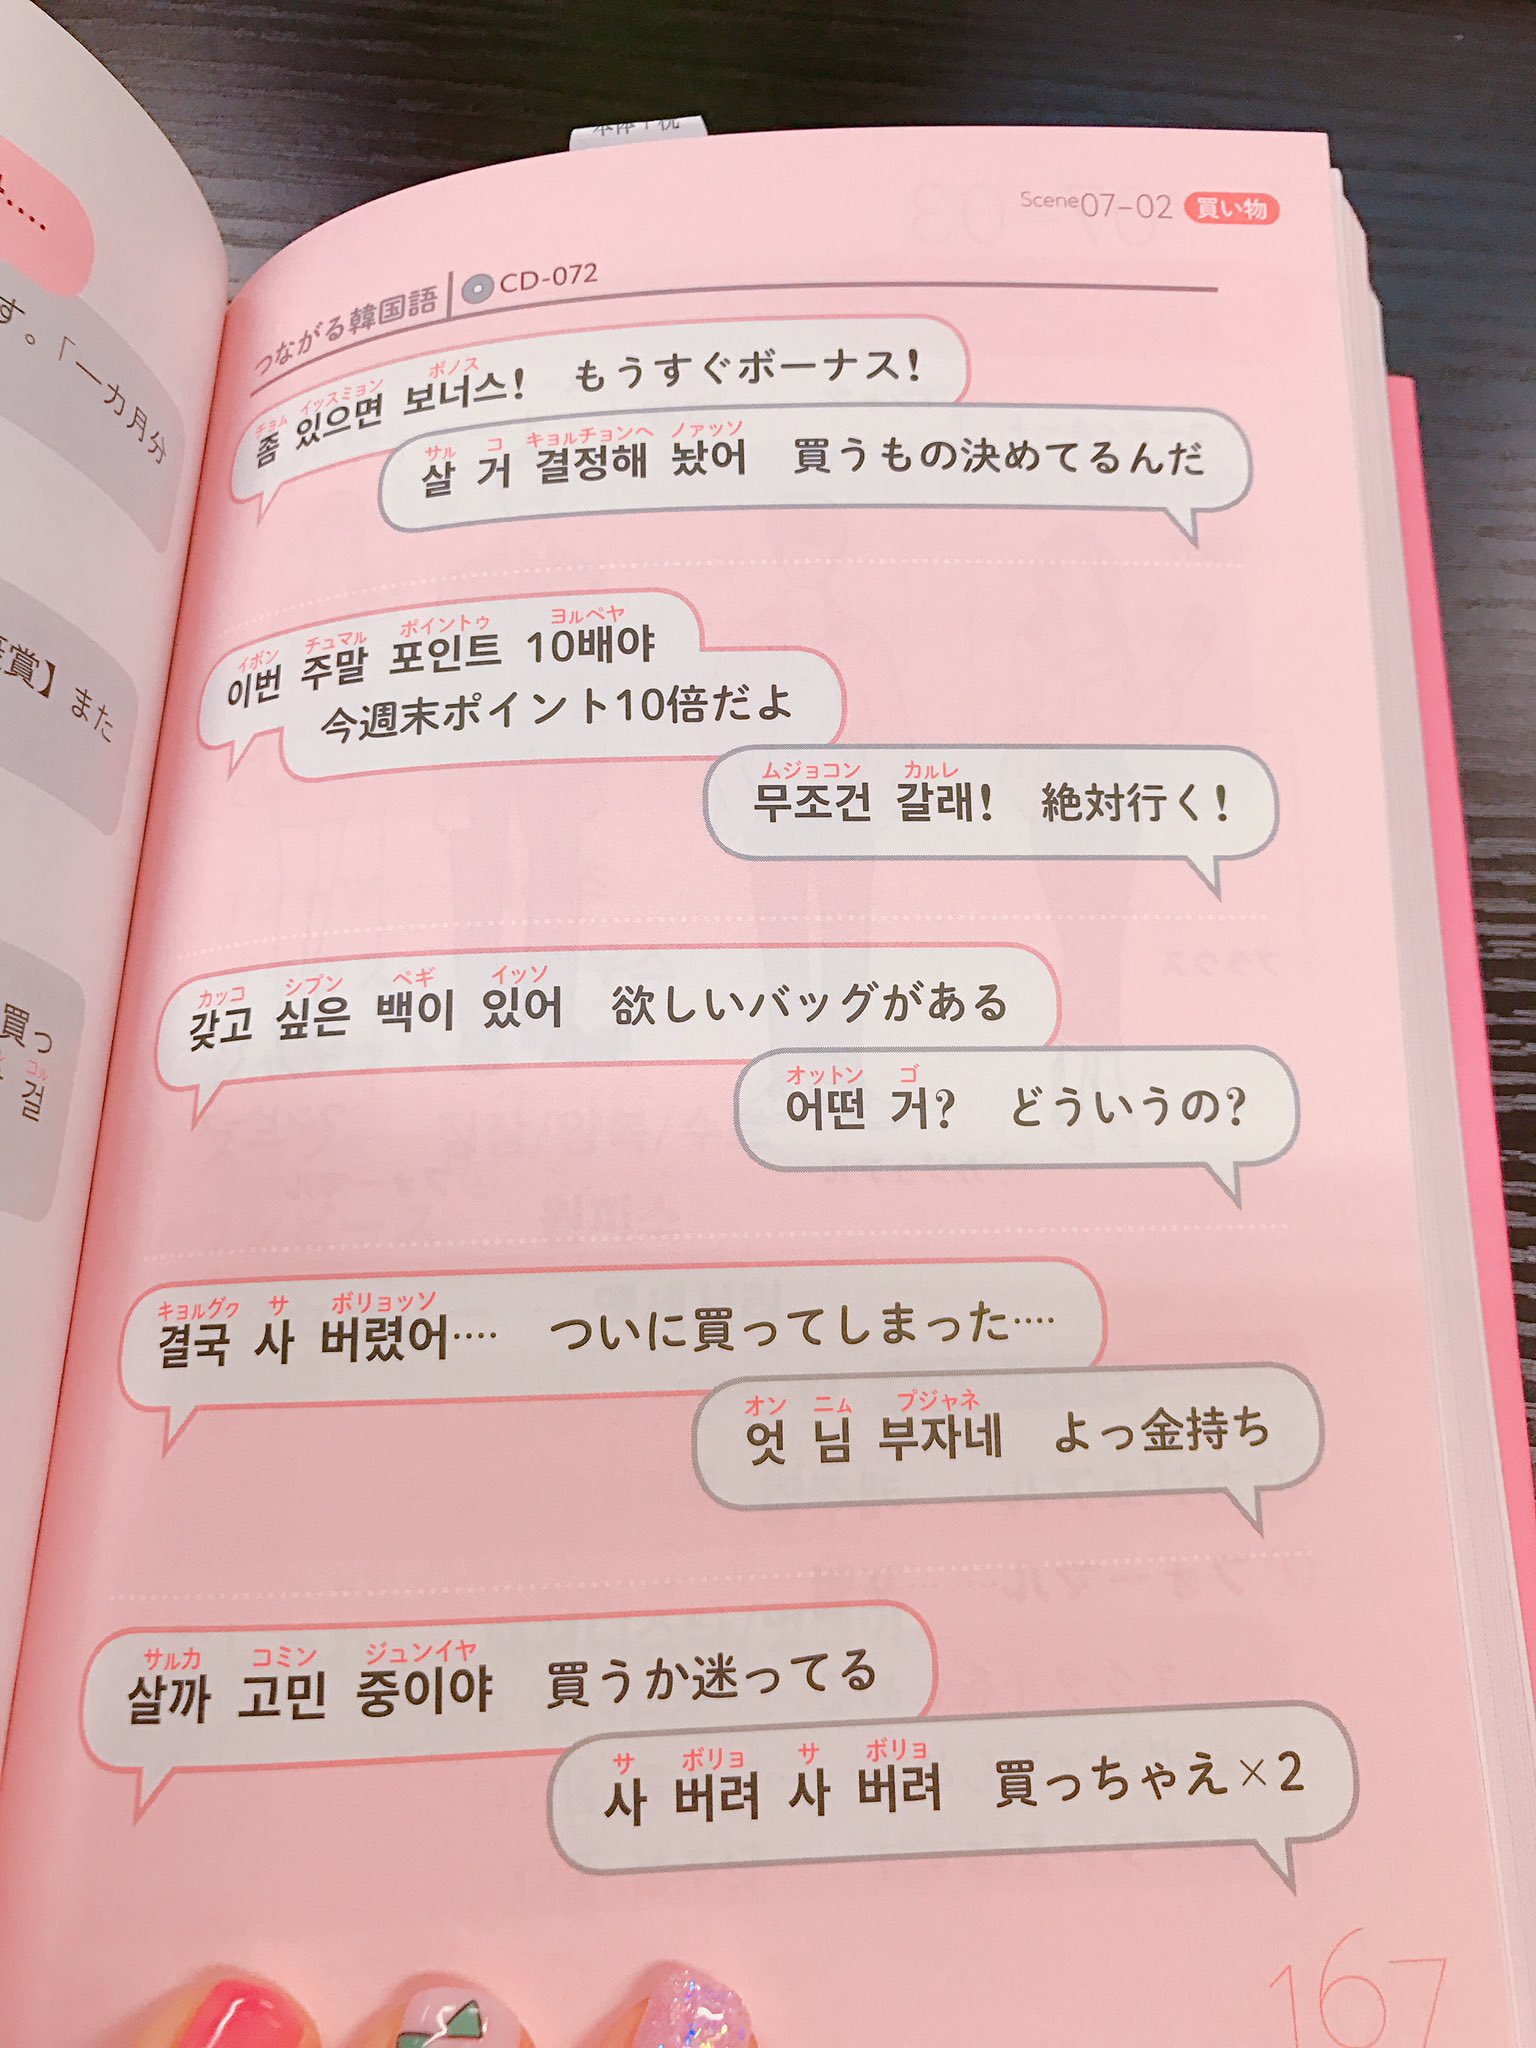 Scene07-02 買い物
つながる韓国語 CD-072
チョム イッスミョン ボノス
좀 있으면 보너스! もうすぐボーナス!
サル コ キョルチョンヘ ノァッソ
살 거 결정해 놨어 買うもの決めてるんだ
イボン チュマル ポイントゥ ヨルペヤ
이번 주말 포인트 10배야
今週末ポイント10倍だよ
ムジョコン カルレ
무조건 갈래! 絶対行く!
カッコ シプン ペギ イッソ
갖고 싶은 백이 있어 欲しいバッグがある
オットン ゴ
어떤 거? どういうの?
キョルグク サ ボリョッソ
결국 사 버렸어‥‥ ついに買ってしまった‥‥
オン ニム プジャネ
엇 님 부자네 よっ金持ち
サルカ コミン ジュンイヤ
살까 고민 중이야 買うか迷ってる
サ ボリョ サ ボリョ
사 버려 사 버려 買っちゃえ×2
167
す。「一カ月分
賞】また
買っ
コル
걸